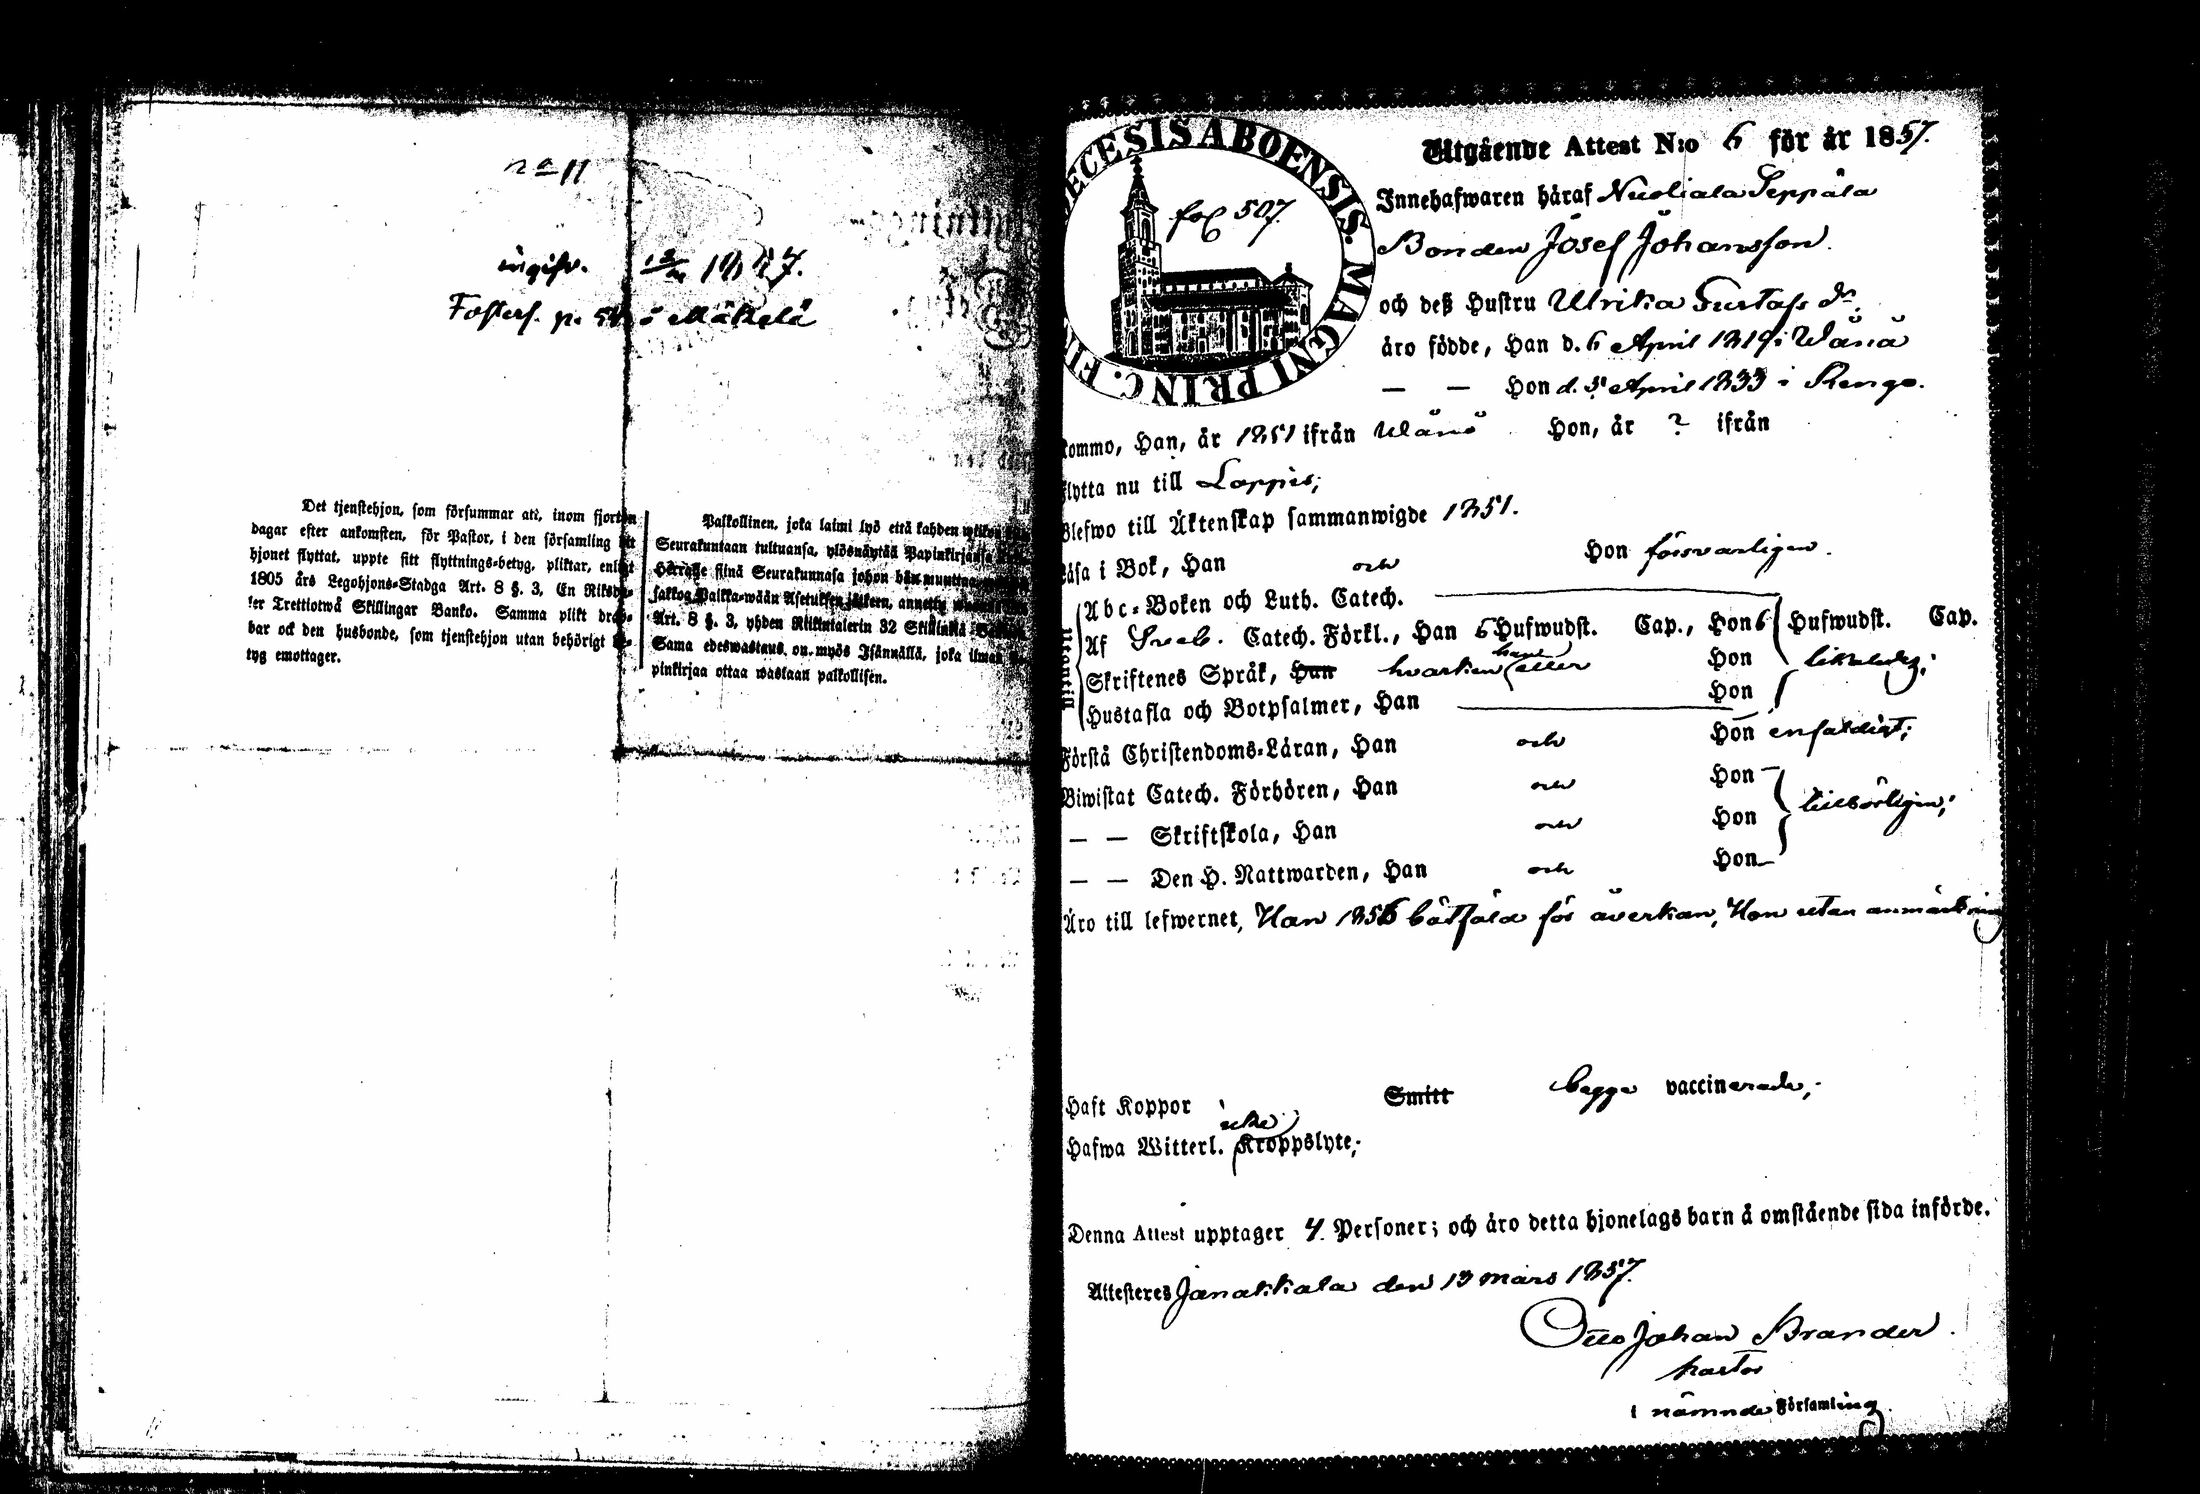 no 11
ingifv. 1857.
Fosterf. p. ö Mäkelä
Det tjenstehjon, som försummar att, inom fjorton
dagar efter ankomsten, för Pastor, i den församling dit
hjonet flyttat, uppte sitt flyttnings-betyg, pliktar, enligt
1805 års Legohjons-Stadga Art. 8 §. 3, En Riksda-
ler Trettiotwå Skillingar Banko. Samma plikt drab-
bar ock den husbonde, som tjenstehjon utan behörigt be-
tyg emottager.
Palkollinen, joka laimi lyö että kahden wiikon
Seurakuntaan tultuansa, ylösnäytää Papinkirjansa
Herralle siinä Seurakunnasa johon hän muuttanut
sakkog Palkka-wään Asetuksen jälken, annettu
Art. 8 §. 3, yhden Riikintalerin 32 Skillinkiä Bankos
Sama edeswastaus on myös Isännällä, joka ilman
pinkirjaa ottaa wastaan palkollisen.
DIOECESIS ABOENSIS. MAGNI PRINC. FIN
fol 507.
Utgående Attest N:o 6 för år 1857.
Innehafwaren häraf Nuoliala Seppälä
Bonden Josef Johansson.
och deß Hustru Ulrika Gustafs dr.
äro födde, Han d. 6 April 1819 i Wånå
— — Hon d. 5 April 1833 i Rengo.
Kommo, Han, år 1851 ifrån Wånå Hon, år ? ifrån
Flytta nu till Loppis;
Blefwo till Äktenskap sammanwigde 1851.
Läsa i Bok, Han och Hon försvarligen.
Utantill
Abc-Boken och Luth. Catech.
Af Sveb. Catech. Förkl., Han 6 Hufwudst. Cap., Hon 6 Hufwudst. Cap.
Skriftenes Språk, Han hvarken han eller Hon
Hustafla och Botpsalmer, Han Hon
Förstå Christendoms-Läran, Han och Hon enfaldigt;
Biwistat Catech. Förhören, Han och Hon
tillbörligen;
— — Skriftskola, Han och Hon
— — Den H. Nattwarden, Han och Hon
Äro till lefwernet, Han 1856 bötfäld för åverkan, Hon utan anmärkning
Haft Koppor Smitt bägge vaccinerade;
Hafwa Witterl. icke Kroppslyte;
Denna Attest upptager 4 Personer; och äro detta hjonelags barn å omstående sida införde.
Attesteres Janakkala den 13 mars 1857.
Otto Johan Brander.
pastor
i nämnde Församling.